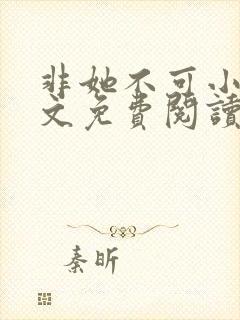 非她不可小
文免費閱讀
秦昕